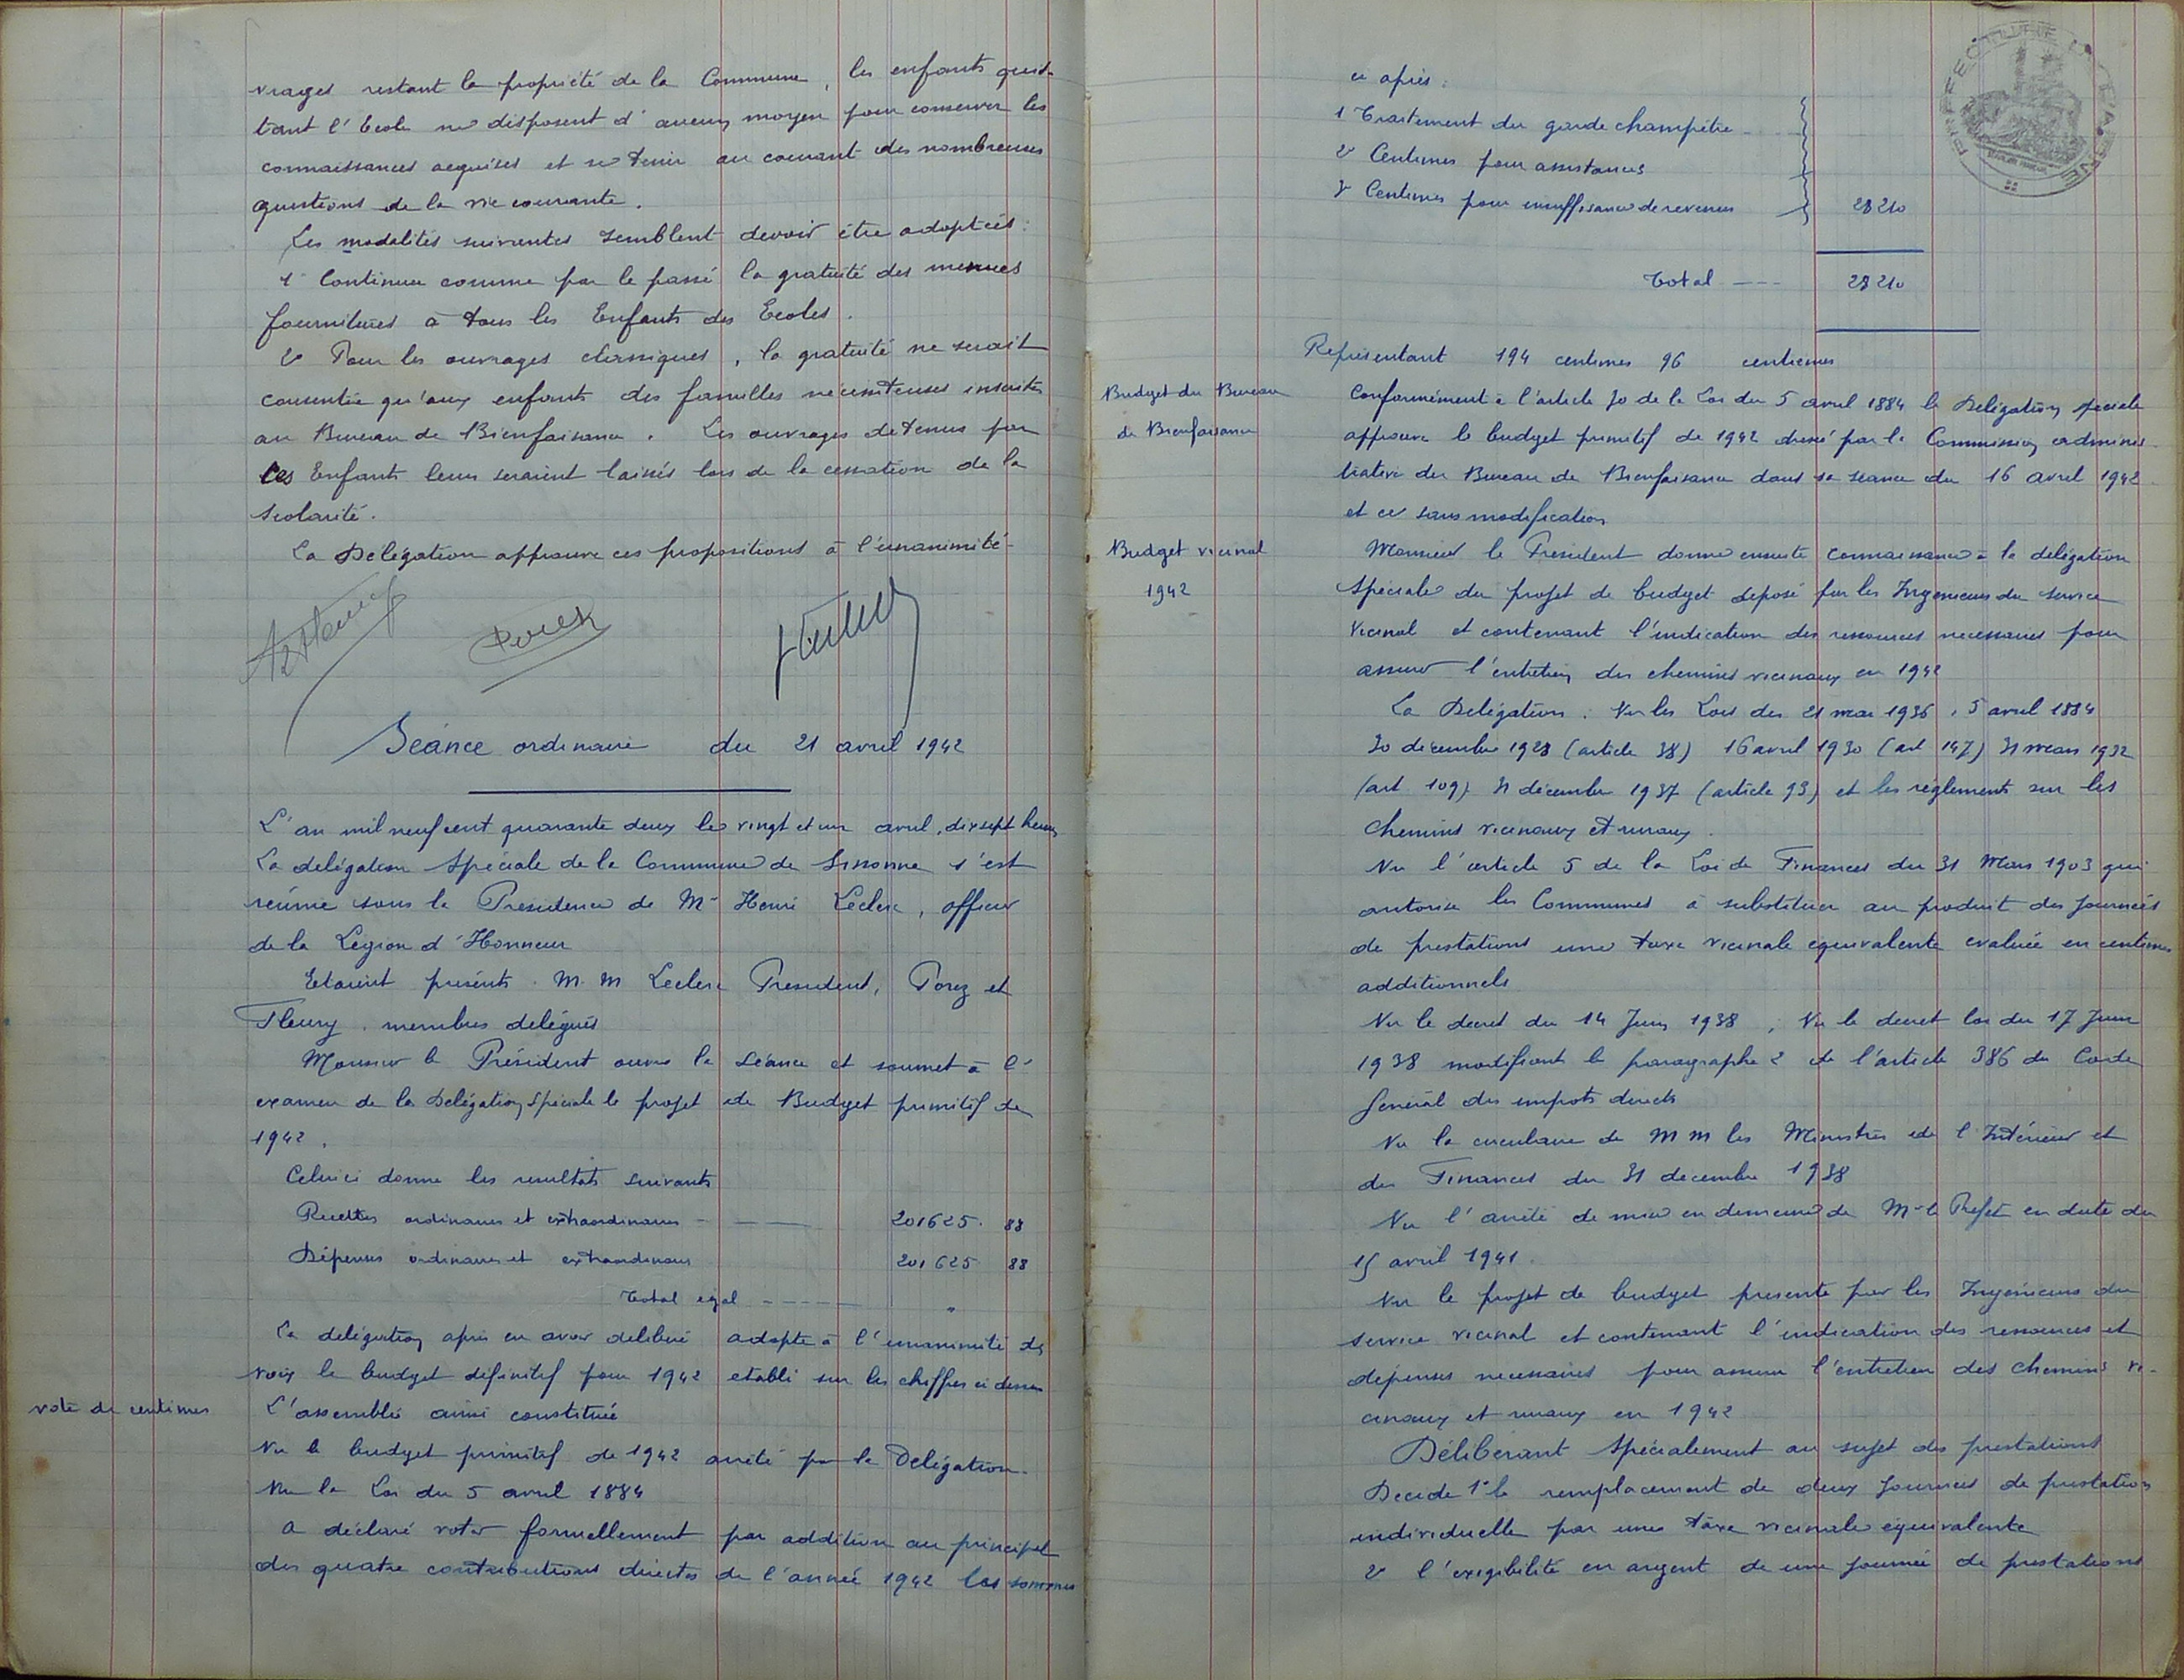 vrages restant la propriété de la Commune, les enfants quit-
tant l'Ecole ne disposent d'aucun moyen pour conserver les
connaissances acquises et se tenir au courant des nombreuses
questions de la vie courante.
Les modalités suivantes semblent devoir être adoptées :
1° Continuer comme par le passé la gratuité des menues
fournitures à tous les Enfants des Ecoles.
2° Pour les ouvrages classiques, la gratuité ne serait
consentie qu'aux enfants des familles nécessiteuses inscrites
au Bureau de Bienfaisance. Les ouvrages détenus par
ces Enfants leur seraient laissés lors de la cessation de la
scolarité.
La Délégation approuve ces propositions à l'unanimité
Séance ordinaire du 21 avril 1942
L'an mil neuf cent quarante deux le vingt et un avril, dix sept heures
La délégation Spéciale de la Commune de Sissonne s'est
réunie sous la Présidence de Mr Henri Leclerc, officier
de la Légion d'Honneur
Etaient présents M.M Leclerc Président, Porez et
Fleury, membres délégués
Monsieur le Président ouvre la séance et soumet à l'
examen de la Délégation Spéciale le projet de Budget primitif de
1942.
Celui ci donne les resultats suivants
Recettes ordinaires et extraordinaires - --- 201625. 88
Dépenses ordinaires et extraordinaires 201625 88
Total egal ----- "
La délégation après en avoir délibéré adopte à l'unanimité des
voix le budget définitif pour 1942 etabli sur les chiffres ci dessus
vote de centimes
L'assemblée ainsi constituée
Vu le budget primitif de 1942 arrêté par la Délégation.
Vu la Loi du 5 avril 1884
a déclaré voter formellement par addition au principal
des quatre contributions directes de l'année 1942 les sommes
ci après :
1° Traitement du garde champêtre
2° Centimes pour assistances
3° Centimes pour insuffisance de revenus 28210
Total --- 28210
Représentant 194 centimes 96 centièmes
Budget du Bureau
de Bienfaisance
Conformément à l'article 70 de la Loi du 5 avril 1884 la Délégation spéciale
approuve le budget primitif de 1942 dressé par la Commission adminis-
trative du Bureau de Bienfaisance dans sa séance du 16 avril 1942
et ce sans modification
Budget vicinal
1942
Monsieur le Président donne ensuite connaissance à la délégation
Spéciale du projet de budget déposé par les Ingénieurs du service
Vicinal et contenant l'indication des ressources necessaires pour
assurer l'entretien des chemins vicinaux en 1942
La Délégation : Vu les Lois des 21 mai 1936, 5 avril 1884
30 décembre 1928 (article 38) 16 avril 1930 (art 147) 31 mars 1932
(art 109) 31 décembre 1937 (article 93) et les règlements sur les
chemins vicinaux et ruraux.
Vu l'article 5 de la Loi de Finances du 31 Mars 1903 qui
autorise les Communes à substituer au produit des journées
de prestations une taxe vicinale equivalente evaluée en centimes
additionnels
Vu le decret du 14 Juin 1938, Vu le decret loi du 17 Juin
1938 modifiant le paragraphe 2 de l'article 386 du Code
général des impots directs
Vu la circulaire de MM les Ministres de l'Intérieur et
des Finances du 31 decembre 1938
Vu l'arrêté de mise en demeure de Mr le Préfet en date du
15 avril 1941.
Vu le projet de budget presenté par les Ingénieurs du
service vicinal et contenant l'indication des ressources et
dépenses necessaires pour assurer l'entretien des chemins vi-
cinaux et ruraux en 1942
Délibérant Spécialement au sujet des prestations
Decide 1° le remplacement de deux journées de prestation
individuelle par une taxe vicinale équivalente
2° l'exigibilité en argent de une journée de prestations